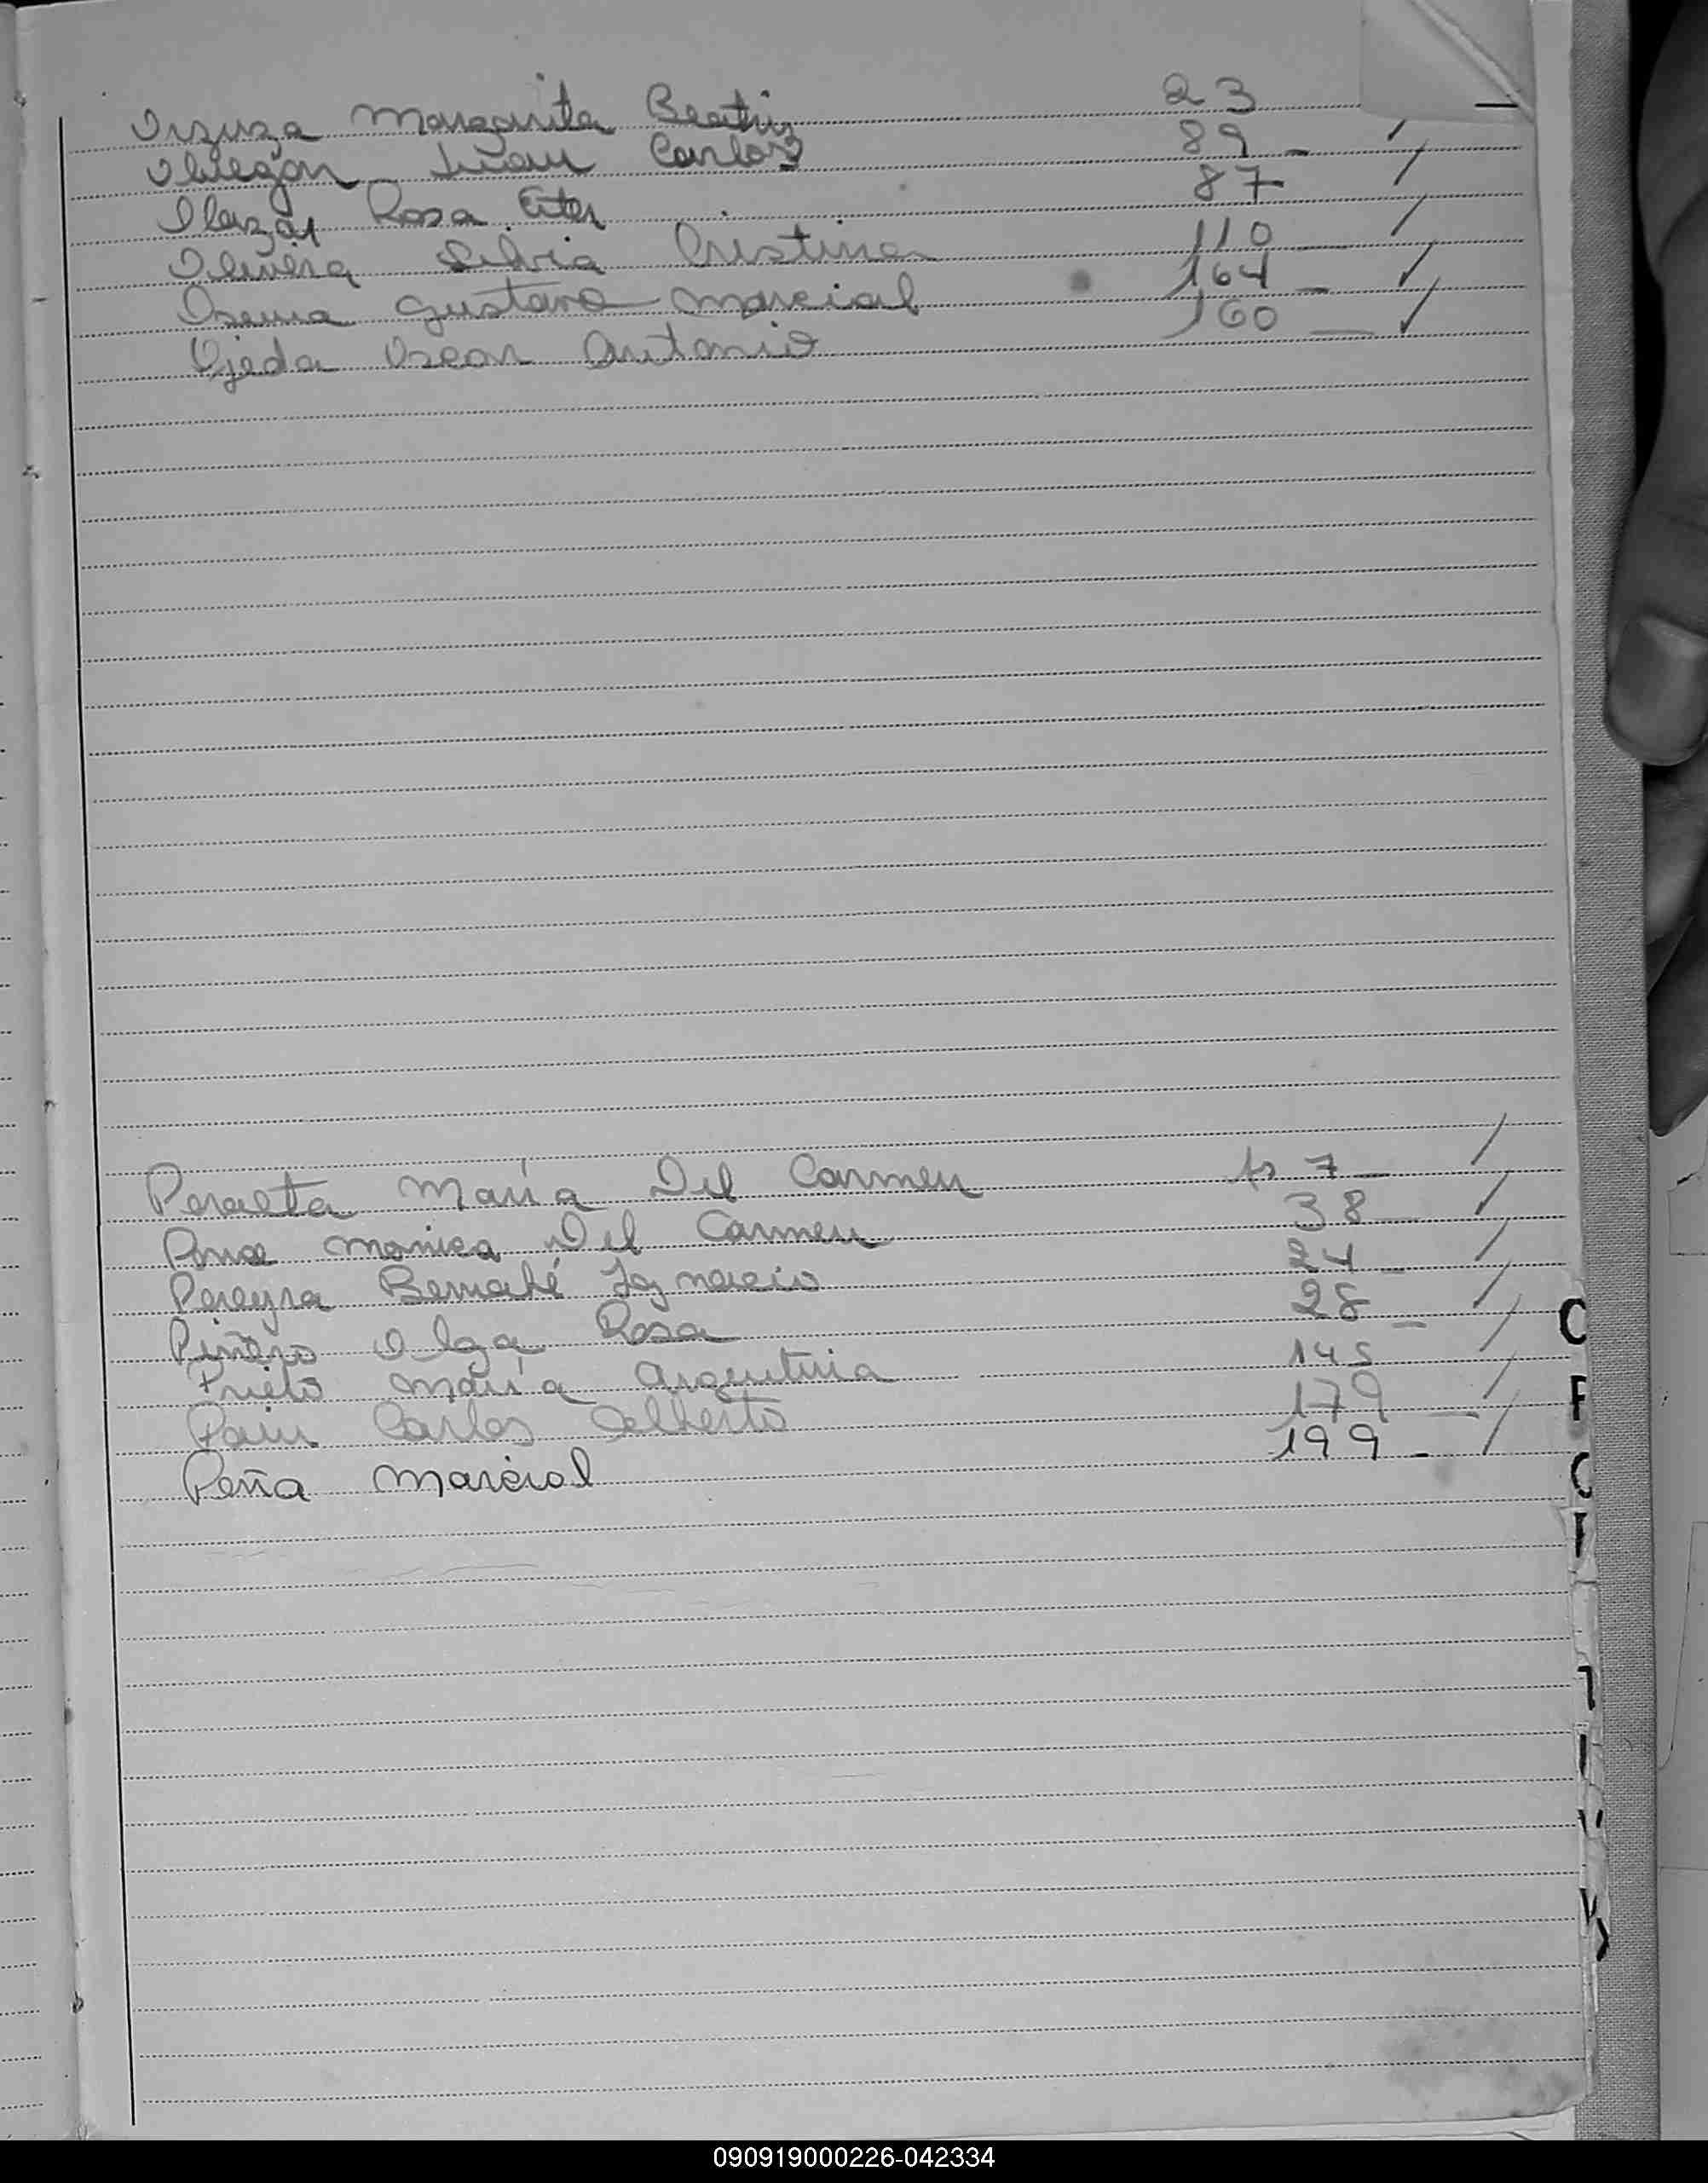 Orzuza Margarita Beatriz 23 —
Obregón Juan Carlos 89 —
Olazar Rosa Ester 87
Olivera Silvia Cristina 110 —
Osema Gustavo Marcial 164 —
Ojeda Oscar Antonio 160 —
Peralta María Del Carmen fs 7 —
Ponce Monica Del Carmen 38 —
Pereyra Bernabé Ignacio 24 —
Piñero Olga Rosa 28 —
Prieto María Argentina 145
Pain Carlos Alberto 179 —
Peña Marcial 199 —
090919000226-042334